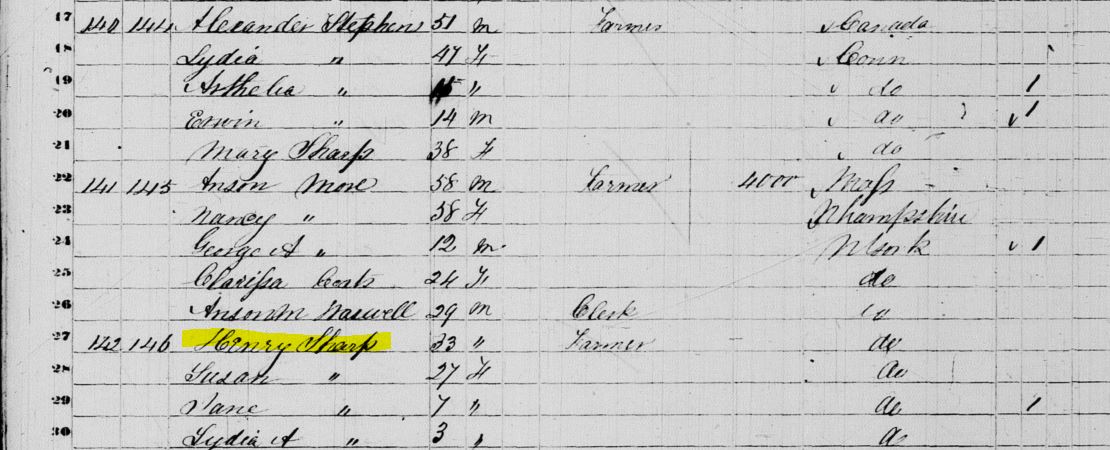 17 140 144 Alexander Stephens 51 m Farmer Canada
18 Lydia " 47 F Conn
19 Asthelia " 15 " do 1
20 Erwin " 14 m do 1
21 Mary Sharp 38 F do
22 141 145 Anson More 58 m Farmer 4000 Mass
23 Nancy " 58 F Nhampshire
24 George A " 12 m N York 1
25 Clarissa 24 F do
26 Anson M 29 m Clerk do
27 142 146 Henry Sharp 33 " Farmer do
28 Susan " 27 F do
29 Jane " 7 " do 1
30 Lydia A " 3 " do